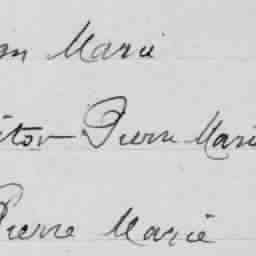 Marie
Pierre Marie
Pierre Marie